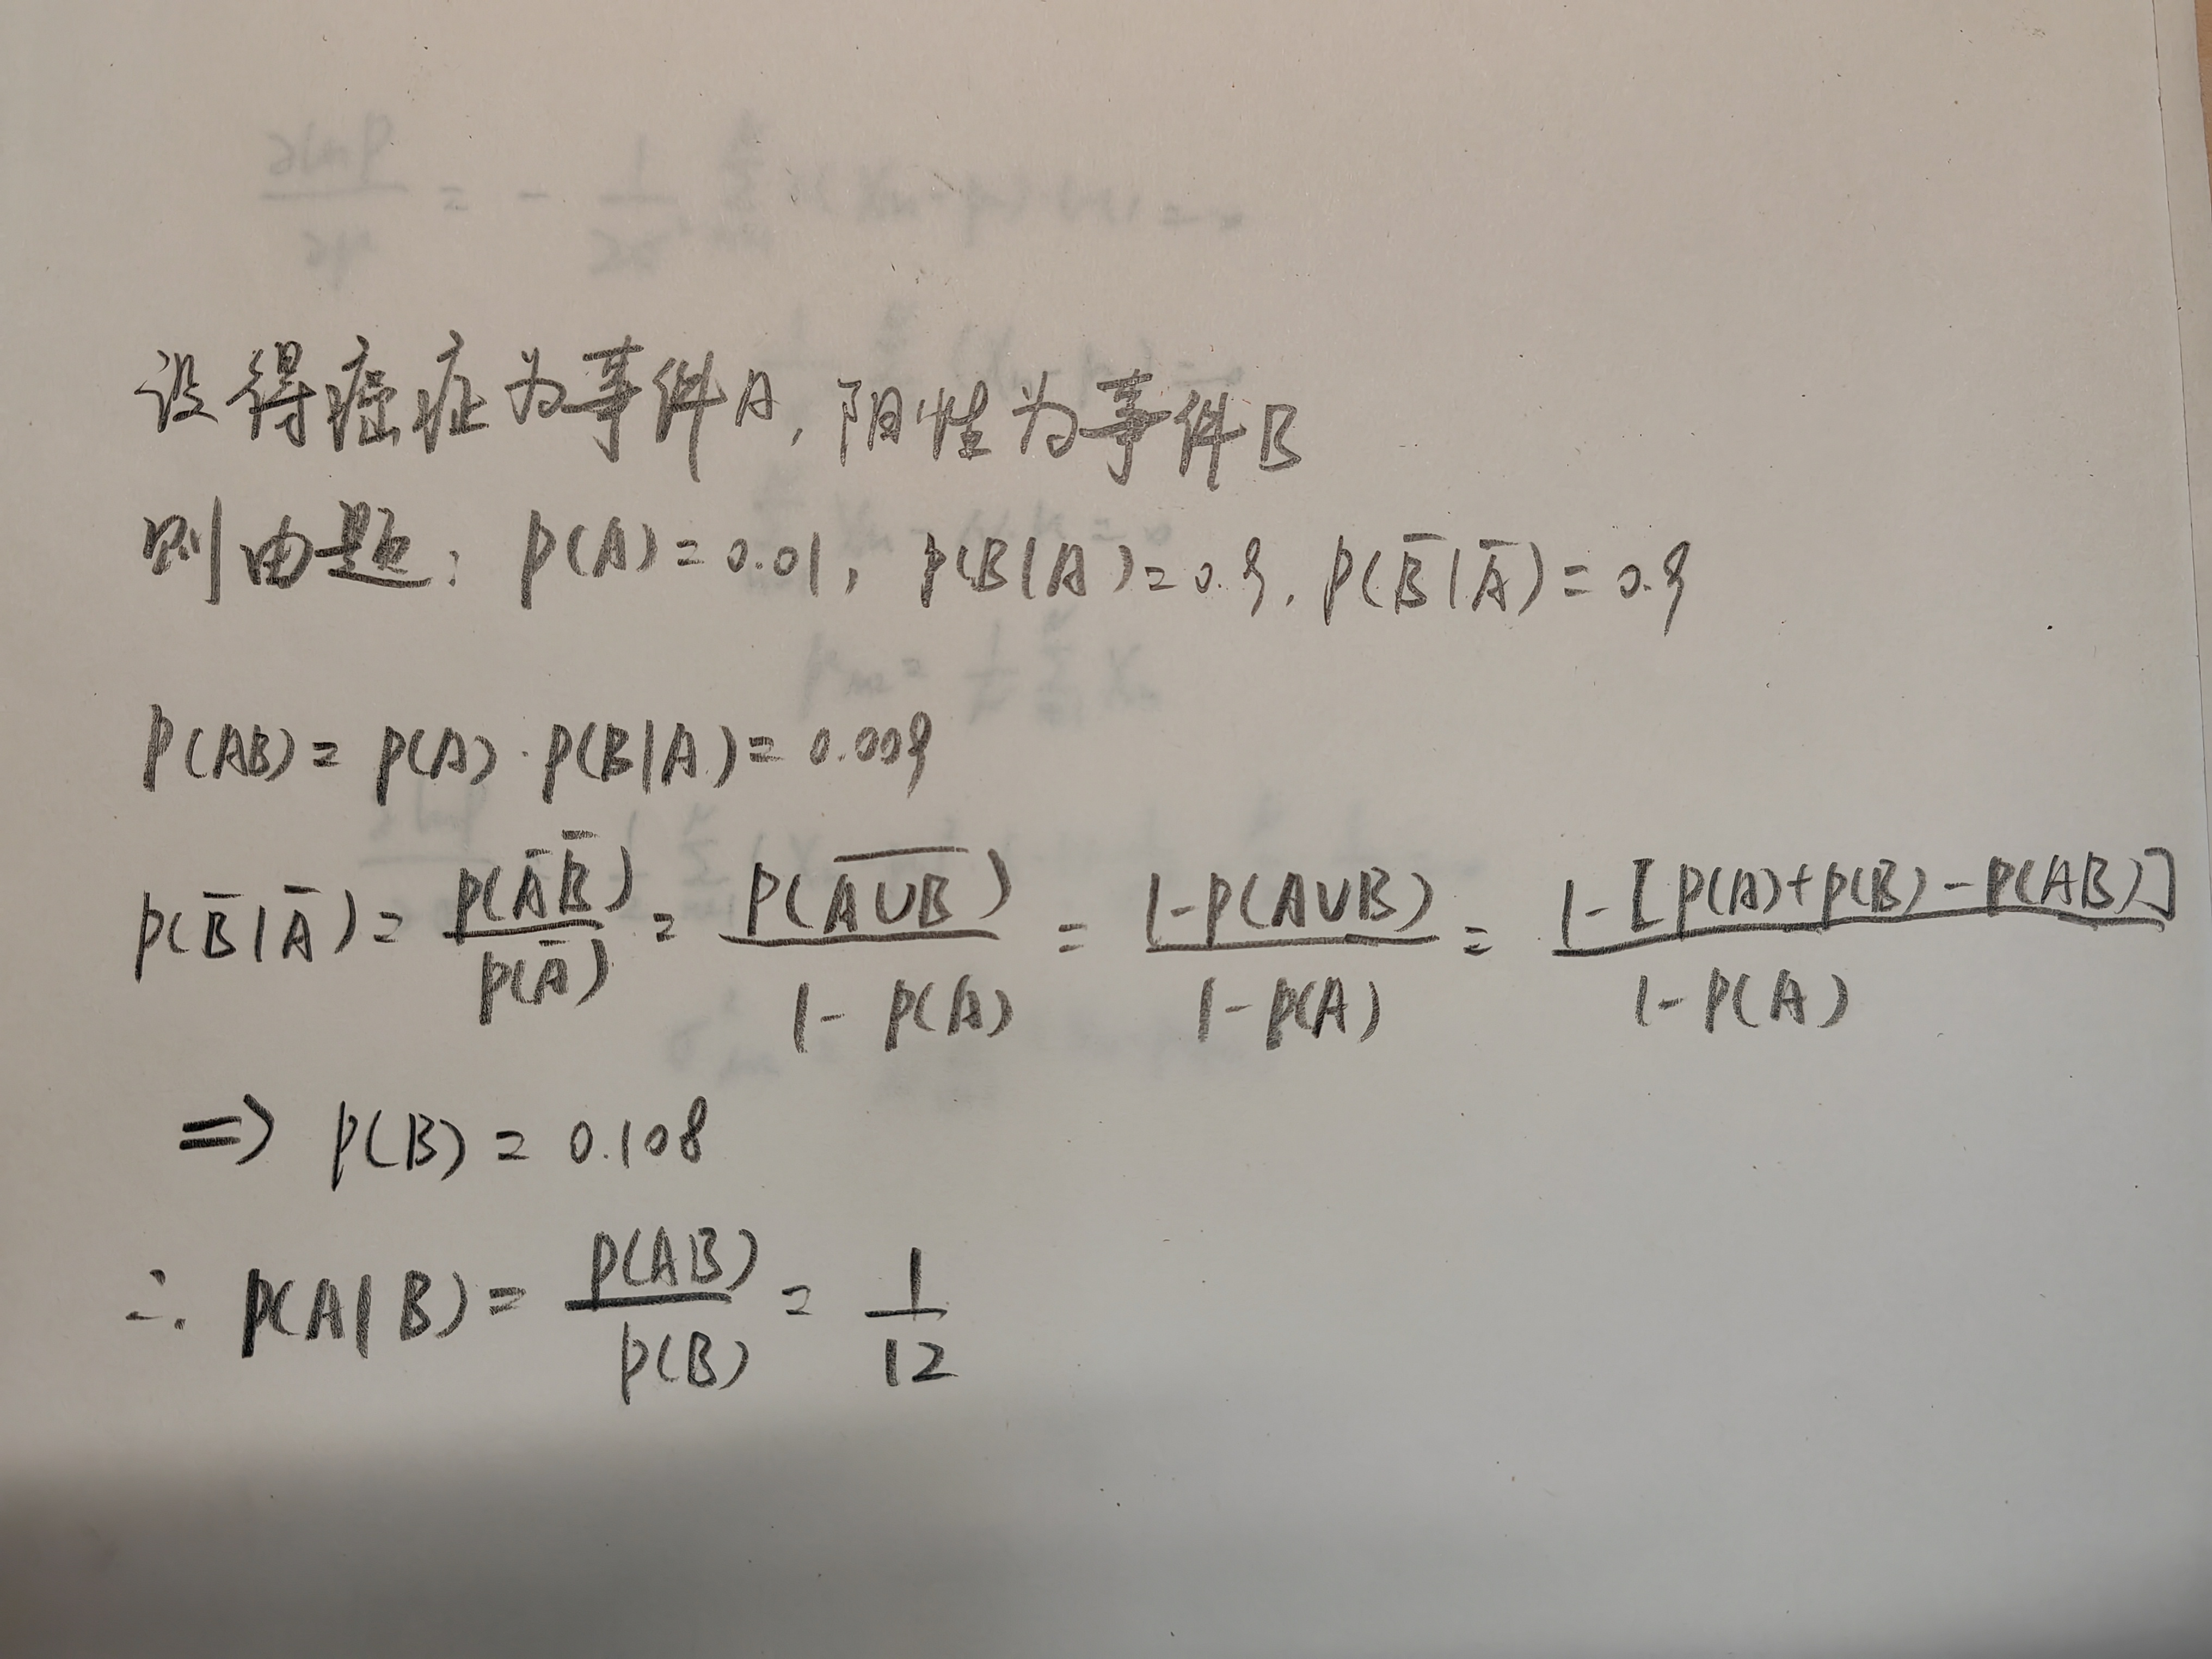 设得癌症为事件A, 阳性为事件B
则由题: P(A)=0.01, P(B|A)=0.9, P(B̅|A̅)=0.9
P(AB)=P(A)·P(B|A)=0.009
P(B̅|A̅)=P(A̅B̅)/P(A̅)=P(\overline{A∪B})/(1-P(A))=(1-P(A∪B))/(1-P(A))=(1-[P(A)+P(B)-P(AB)])/(1-P(A))
⇒ P(B)=0.108
∴ P(A|B)=P(AB)/P(B)=1/12